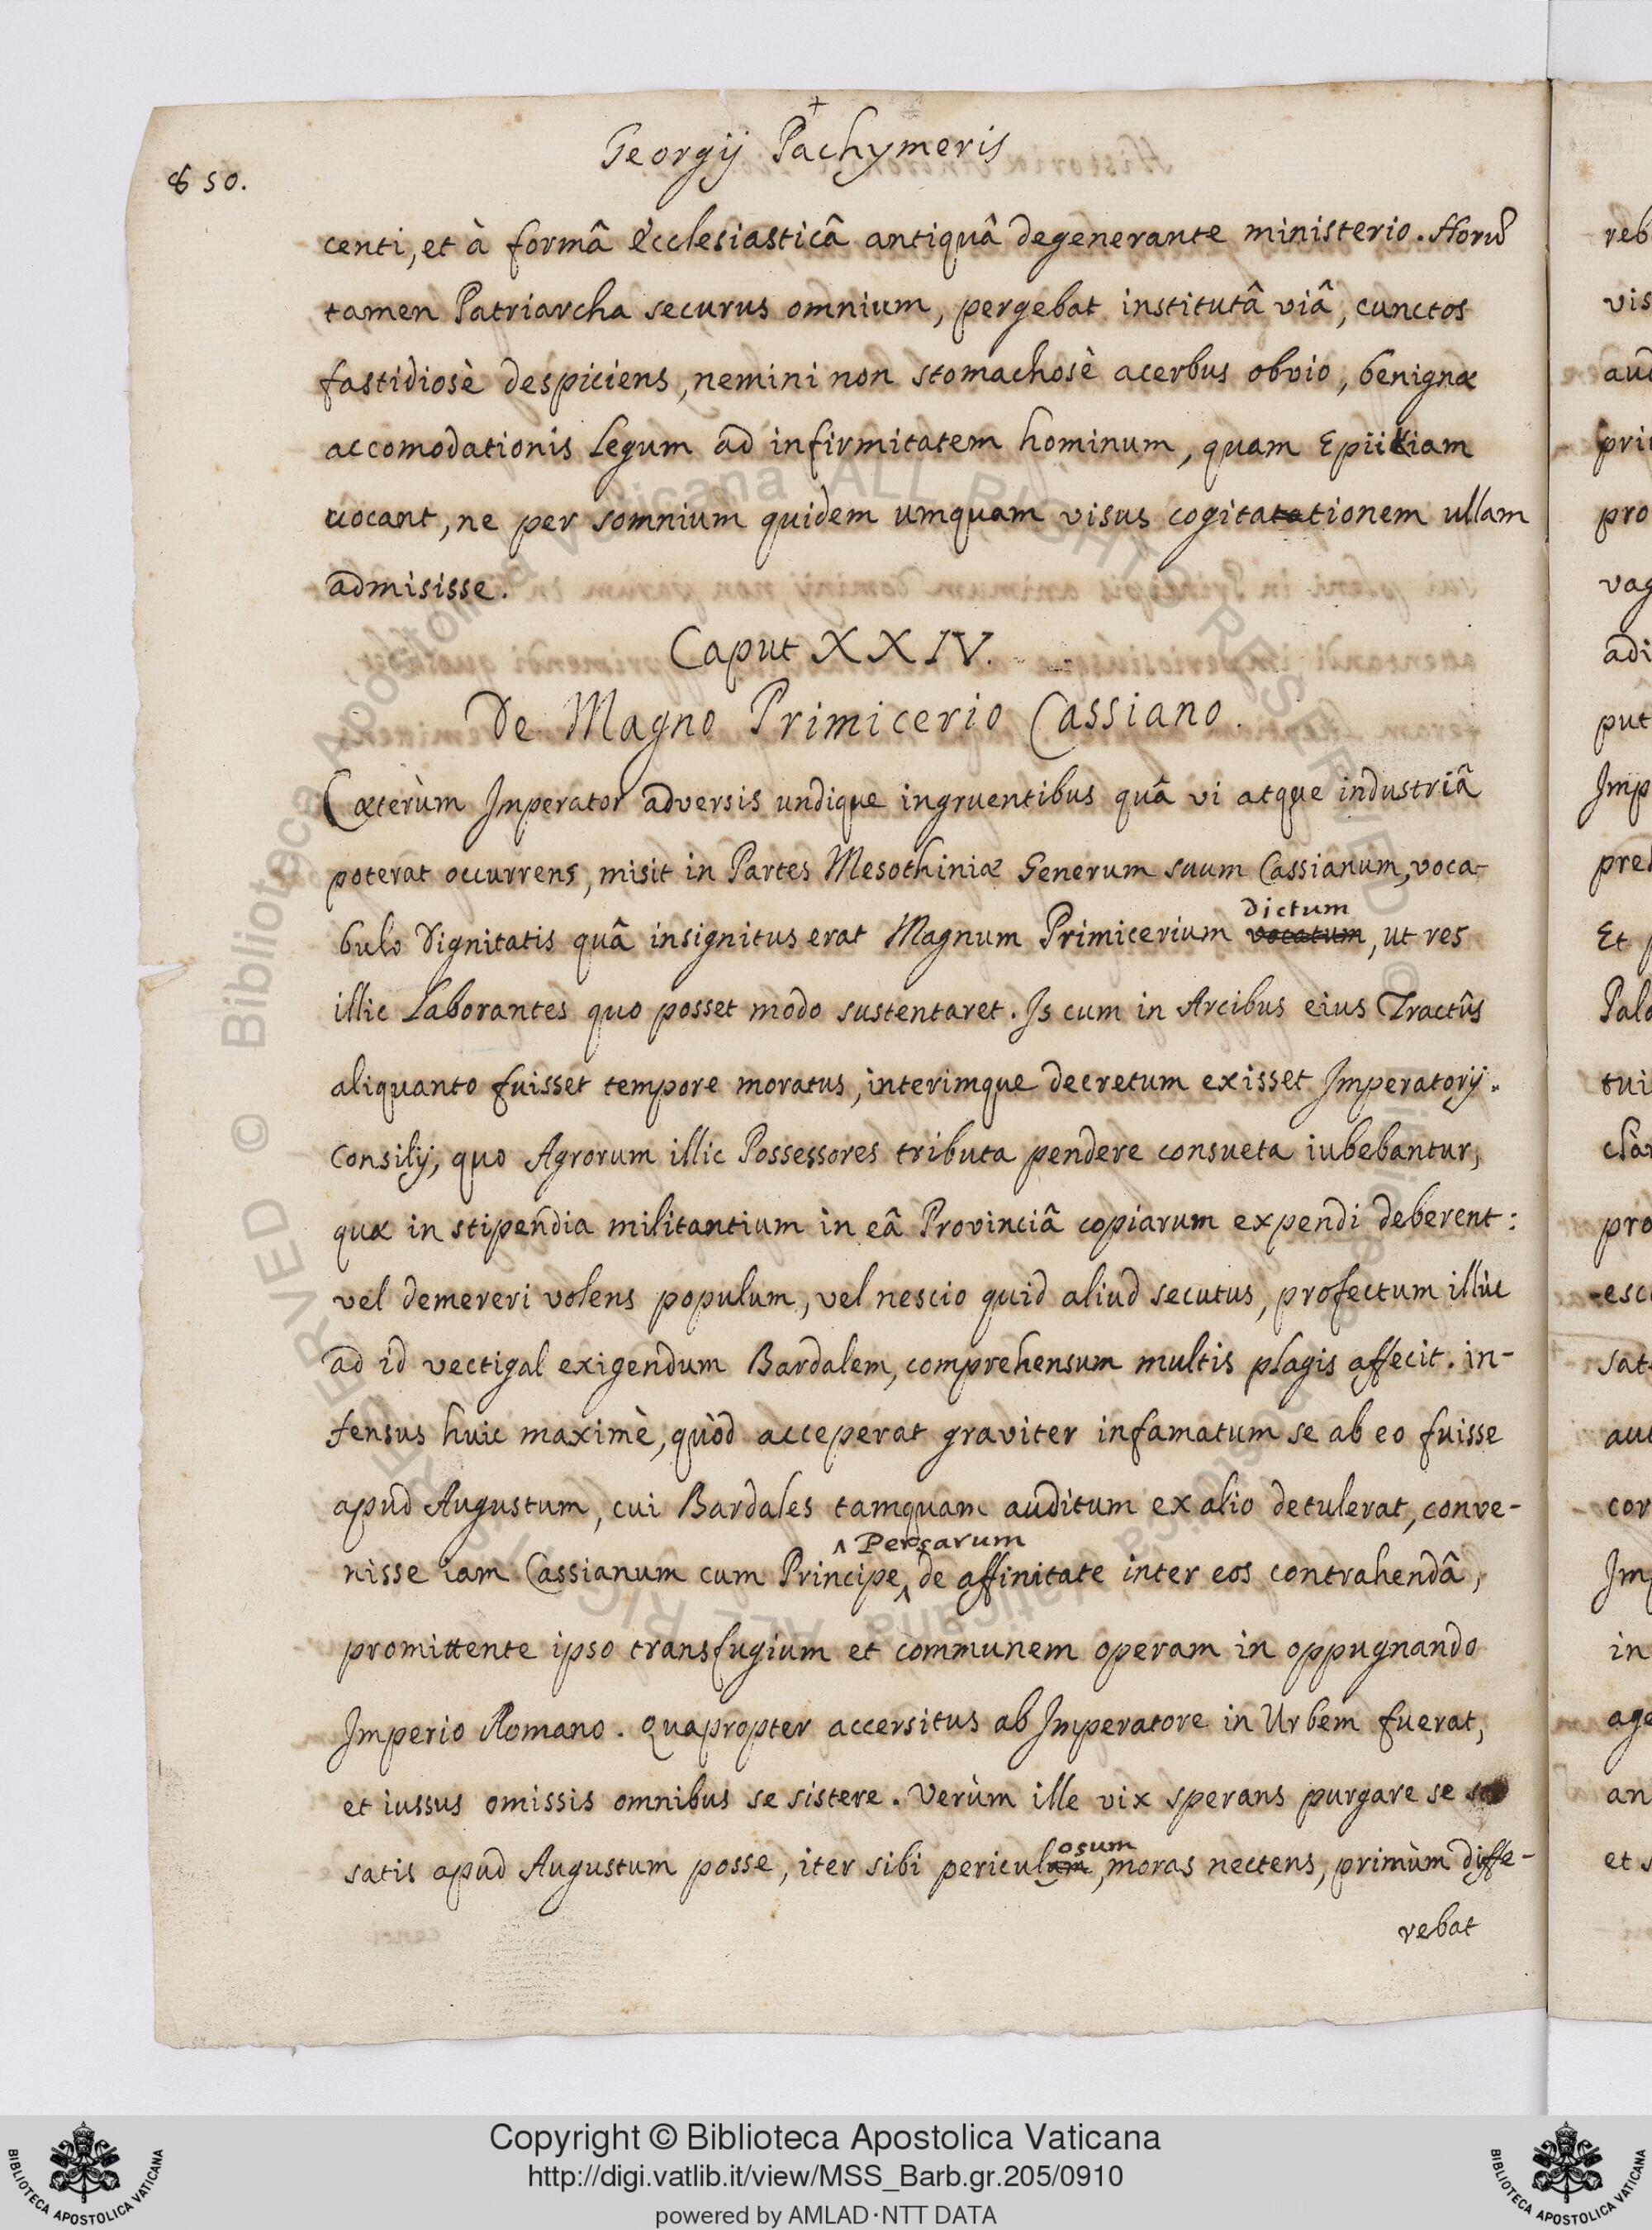 850.
Georgij Pachymeris
centi, et à formâ Ecclesiasticâ antiquâ degenerante ministerio. Horũ
tamen Patriarcha securus omnium, pergebat institutâ viâ, cunctos
fastidiosè despiciens, nemini non stomachosè acerbus obvio, benignæ
accomodationis Legum ad infirmitatem hominum, quam Epiikiam
vocant, ne per somnium quidem umquam visus cogitatationem ullam
admisisse.
Caput XXIV.
De Magno Primicerio Cassiano.
Cæterùm Imperator adversis undique ingruentibus quâ vi atque industriâ
poterat occurrens, misit in Partes Mesothiniæ Generum suum Cassianum, voca-
dictum
bulo Dignitatis quâ insignitus erat Magnum Primicerium vocatum, ut res
illic Laborantes quo posset modo sustentaret. Is cum in Arcibus eius Tractûs
aliquanto fuisset tempore moratus, interimque decretum exisset Imperatorij.
Consilij, quo Agrorum illic Possessores tributa pendere consueta iubebantur,
quæ in stipendia militantium in eâ Provinciâ copiarum expendi deberent:
vel demereri volens populum, vel nescio quid aliud secutus, profectum illùc
ad id vectigal exigendum Bardalem, comprehensum multis plagis affecit. in-
fensus huic maximè, quòd acceperat graviter infamatum se ab eo fuisse
apud Augustum, cui Bardales tamquam auditum ex alio detulerat, conve-
^ Persarum
nisse iam Cassianum cum Principe^ de affinitate inter eos contrahendâ,
promittente ipso transfugium et communem operam in oppugnando
Imperio Romano. Quapropter accersitus ab Imperatore in Urbem fuerat,
et iussus omissis omnibus se sistere. Verùm ille vix sperans purgare se
osum
satis apud Augustum posse, iter sibi periculum, moras nectens, primùm diffe-
rebat
reb
vis
pri
pro
vag
adi
put
Imp
Et
tui
pro
esc
sat
cor
Im
in
age
an
et
© Biblioteca Apostolica Vaticana ALL RIGHTS RESERVED
Copyright © Biblioteca Apostolica Vaticana
http://digi.vatlib.it/view/MSS_Barb.gr.205/0910
powered by AMLAD·NTT DATA
BIBLIOTECA APOSTOLICA VATICANA
BIBLIOTECA APOSTOLICA VATICANA